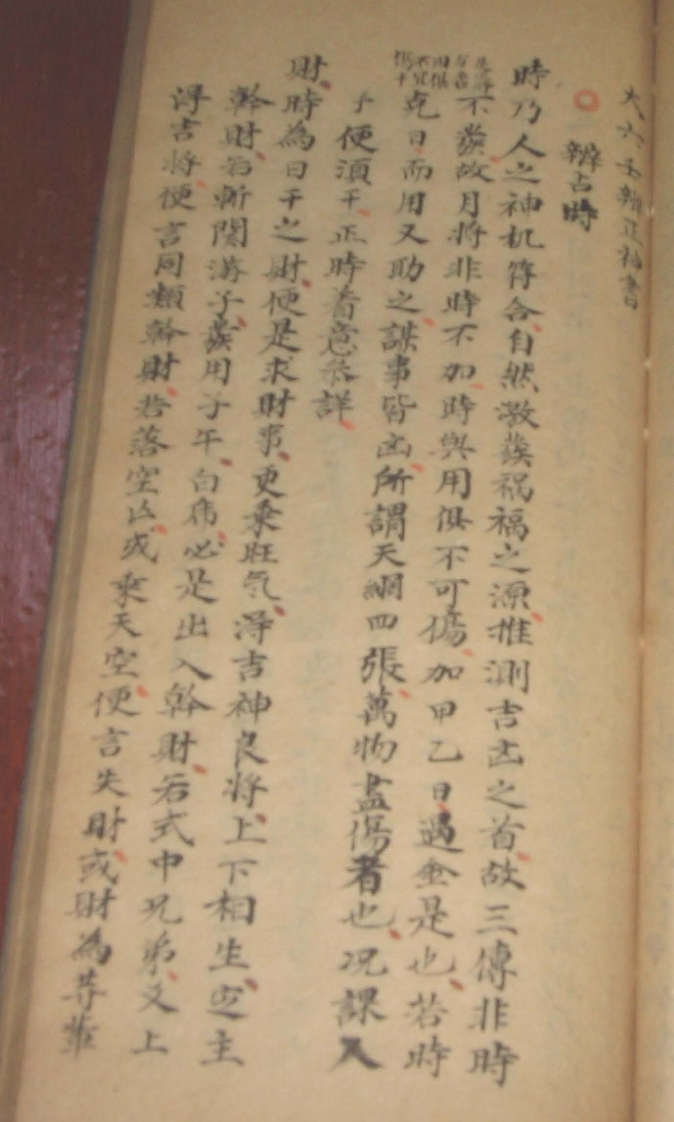 大六壬辨正秘書
辨占時
時乃人之神机符合自然激發禍福之源推測吉凶之首故三傳非時
不發故月將非時不加時與用俱不可傷加甲乙日遇金是也若時
克日而用又助之謀事皆凶所謂天網四張萬物盡傷者也况課入
于便須干正時着意叅詳
財時為日干之財便是求財事更乘旺气淂吉神良將上下相生定主
幹財若斬関游子發用子午白虎必是出入幹財若式中兄弟爻上
淂吉將便言同類幹財若落空亡或乘天空便言失財或財為尊輩